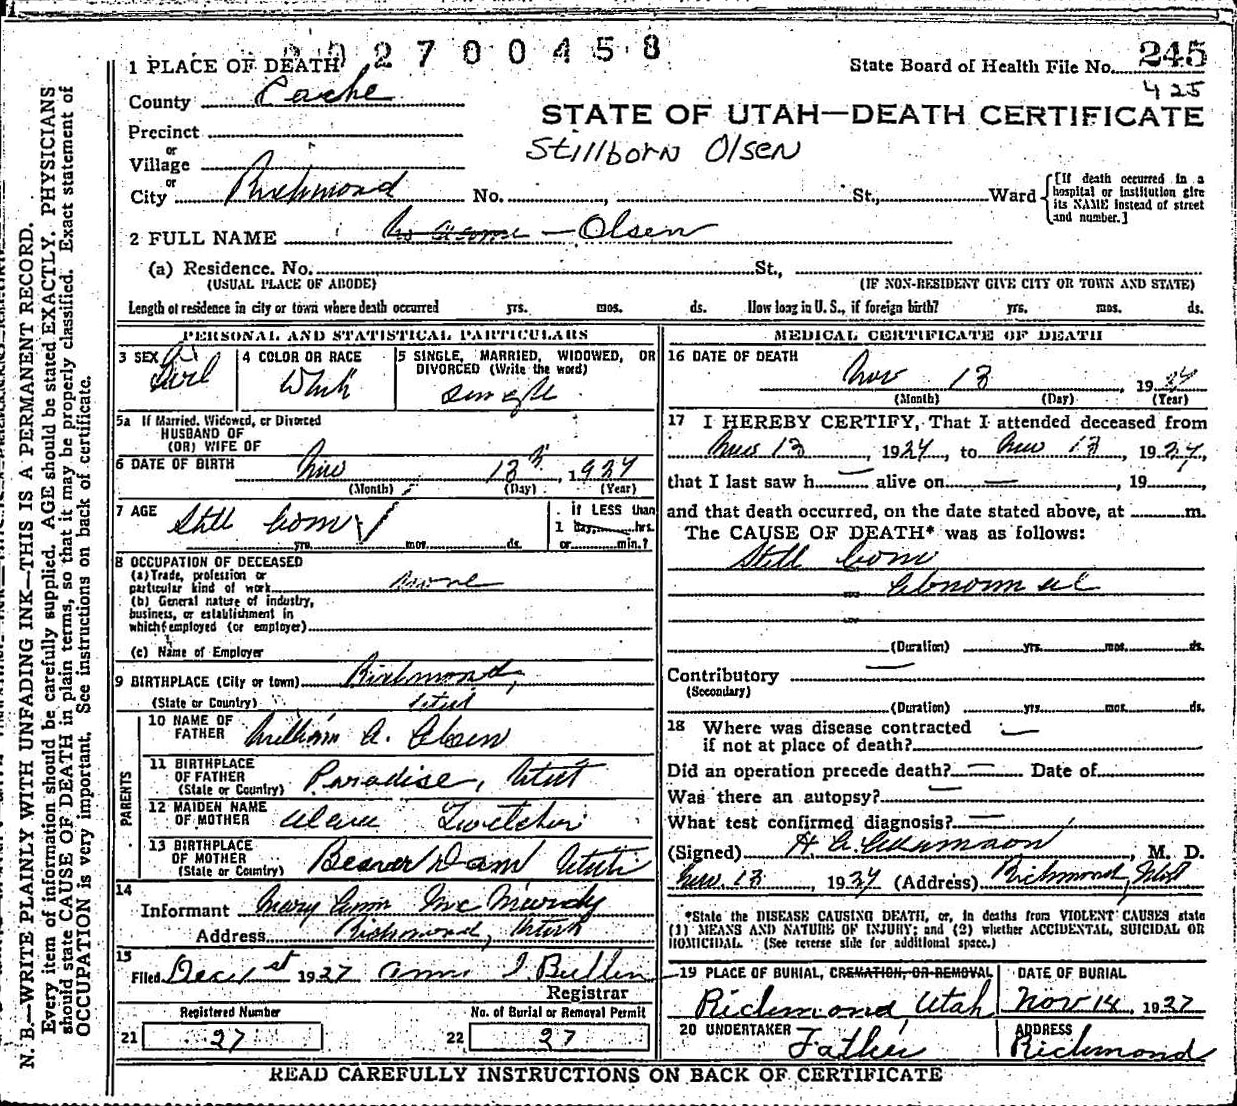 2 7 0 0 4 5 8
1 PLACE OF DEATH
State Board of Health File No. 245
425
County Cache
STATE OF UTAH—DEATH CERTIFICATE
Precinct
or
Village
Stillborn Olsen
or
City Richmond No. , St., Ward
[If death occurred in a hospital or institution give its NAME instead of street and number.]
2 FULL NAME No Name — Olsen
(a) Residence. No. St.,
(USUAL PLACE OF ABODE) (IF NON-RESIDENT GIVE CITY OR TOWN AND STATE)
Length of residence in city or town where death occurred yrs. mos. ds. How long in U. S., if foreign birth? yrs. mos. ds.
PERSONAL AND STATISTICAL PARTICULARS
3 SEX Girl
4 COLOR OR RACE White
5 SINGLE, MARRIED, WIDOWED, OR DIVORCED (Write the word)
single
5a If Married, Widowed, or Divorced
HUSBAND OF
(OR) WIFE OF
6 DATE OF BIRTH Nov 13th, 1927
(Month) (Day) (Year)
7 AGE Still born
yrs. mos. ds.
If LESS than
1 day, hrs.
or min.?
8 OCCUPATION OF DECEASED
(a) Trade, profession or
particular kind of work none
(b) General nature of industry,
business, or establishment in
which employed (or employer)
(c) Name of Employer
9 BIRTHPLACE (City or town) Richmond,
(State or Country) Utah
PARENTS
10 NAME OF FATHER William A. Olsen
11 BIRTHPLACE OF FATHER (State or Country) Paradise, Utah
12 MAIDEN NAME OF MOTHER
13 BIRTHPLACE OF MOTHER (State or Country) Beaver Dam Utah
14
Informant Mary Ann McMurdy
Address Richmond, Utah
15
Filed Dec 1st 1927 J. Bullen
Registrar
Registered Number
21 27
No. of Burial or Removal Permit
22 27
MEDICAL CERTIFICATE OF DEATH
16 DATE OF DEATH
Nov 13, 1927
(Month) (Day) (Year)
17 I HEREBY CERTIFY, That I attended deceased from
Nov 13, 1927, to Nov 13, 1927,
that I last saw h— alive on —, 19
and that death occurred, on the date stated above, at m.
The CAUSE OF DEATH* was as follows:
Still born
Abnormal
(Duration) yrs. mos. ds.
Contributory —
(Secondary)
(Duration) yrs. mos. ds.
18 Where was disease contracted
if not at place of death? —
Did an operation precede death? — Date of
Was there an autopsy? —
What test confirmed diagnosis? —
(Signed) A. A. Adamson, M. D.
Nov. 13, 1927 (Address) Richmond, Utah
*State the DISEASE CAUSING DEATH, or, in deaths from VIOLENT CAUSES state
(1) MEANS AND NATURE OF INJURY; and (2) whether ACCIDENTAL, SUICIDAL OR
HOMICIDAL. (See reverse side for additional space.)
19 PLACE OF BURIAL, CREMATION, OR REMOVAL
Richmond, Utah
DATE OF BURIAL
Nov 14, 1927
20 UNDERTAKER
Father
ADDRESS
Richmond
READ CAREFULLY INSTRUCTIONS ON BACK OF CERTIFICATE
N. B.—WRITE PLAINLY WITH UNFADING INK—THIS IS A PERMANENT RECORD.
Every item of information should be carefully supplied. AGE should be stated EXACTLY. PHYSICIANS
should state CAUSE OF DEATH in plain terms, so that it may be properly classified. Exact statement of
OCCUPATION is very important. See instructions on back of certificate.